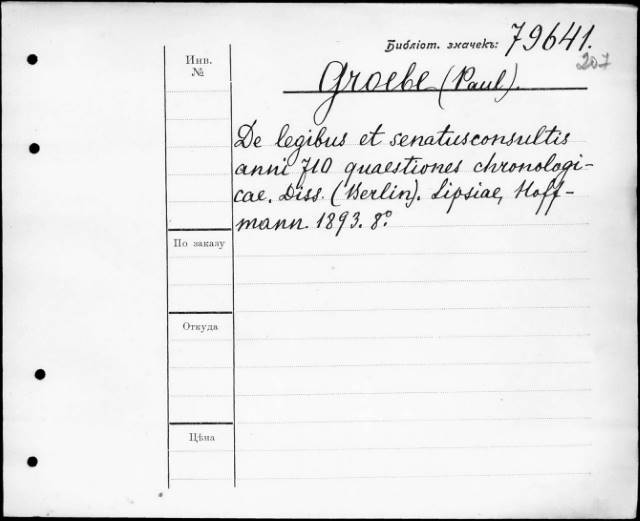 Библіот. значекъ: 79641.
207
Инв.
№
Groebe (Paul).
De legibus et senatusconsultis
anni 710 quaestiones chronologi-
cae. Diss. (Berlin). Lipsiae, Hoff-
mann. 1893. 8°.
По заказу
Откуда
Цѣна